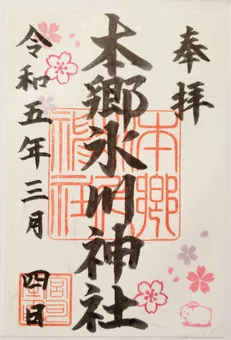 奉拝
本郷氷川神社
令和五年三月四日
本郷氷川神社